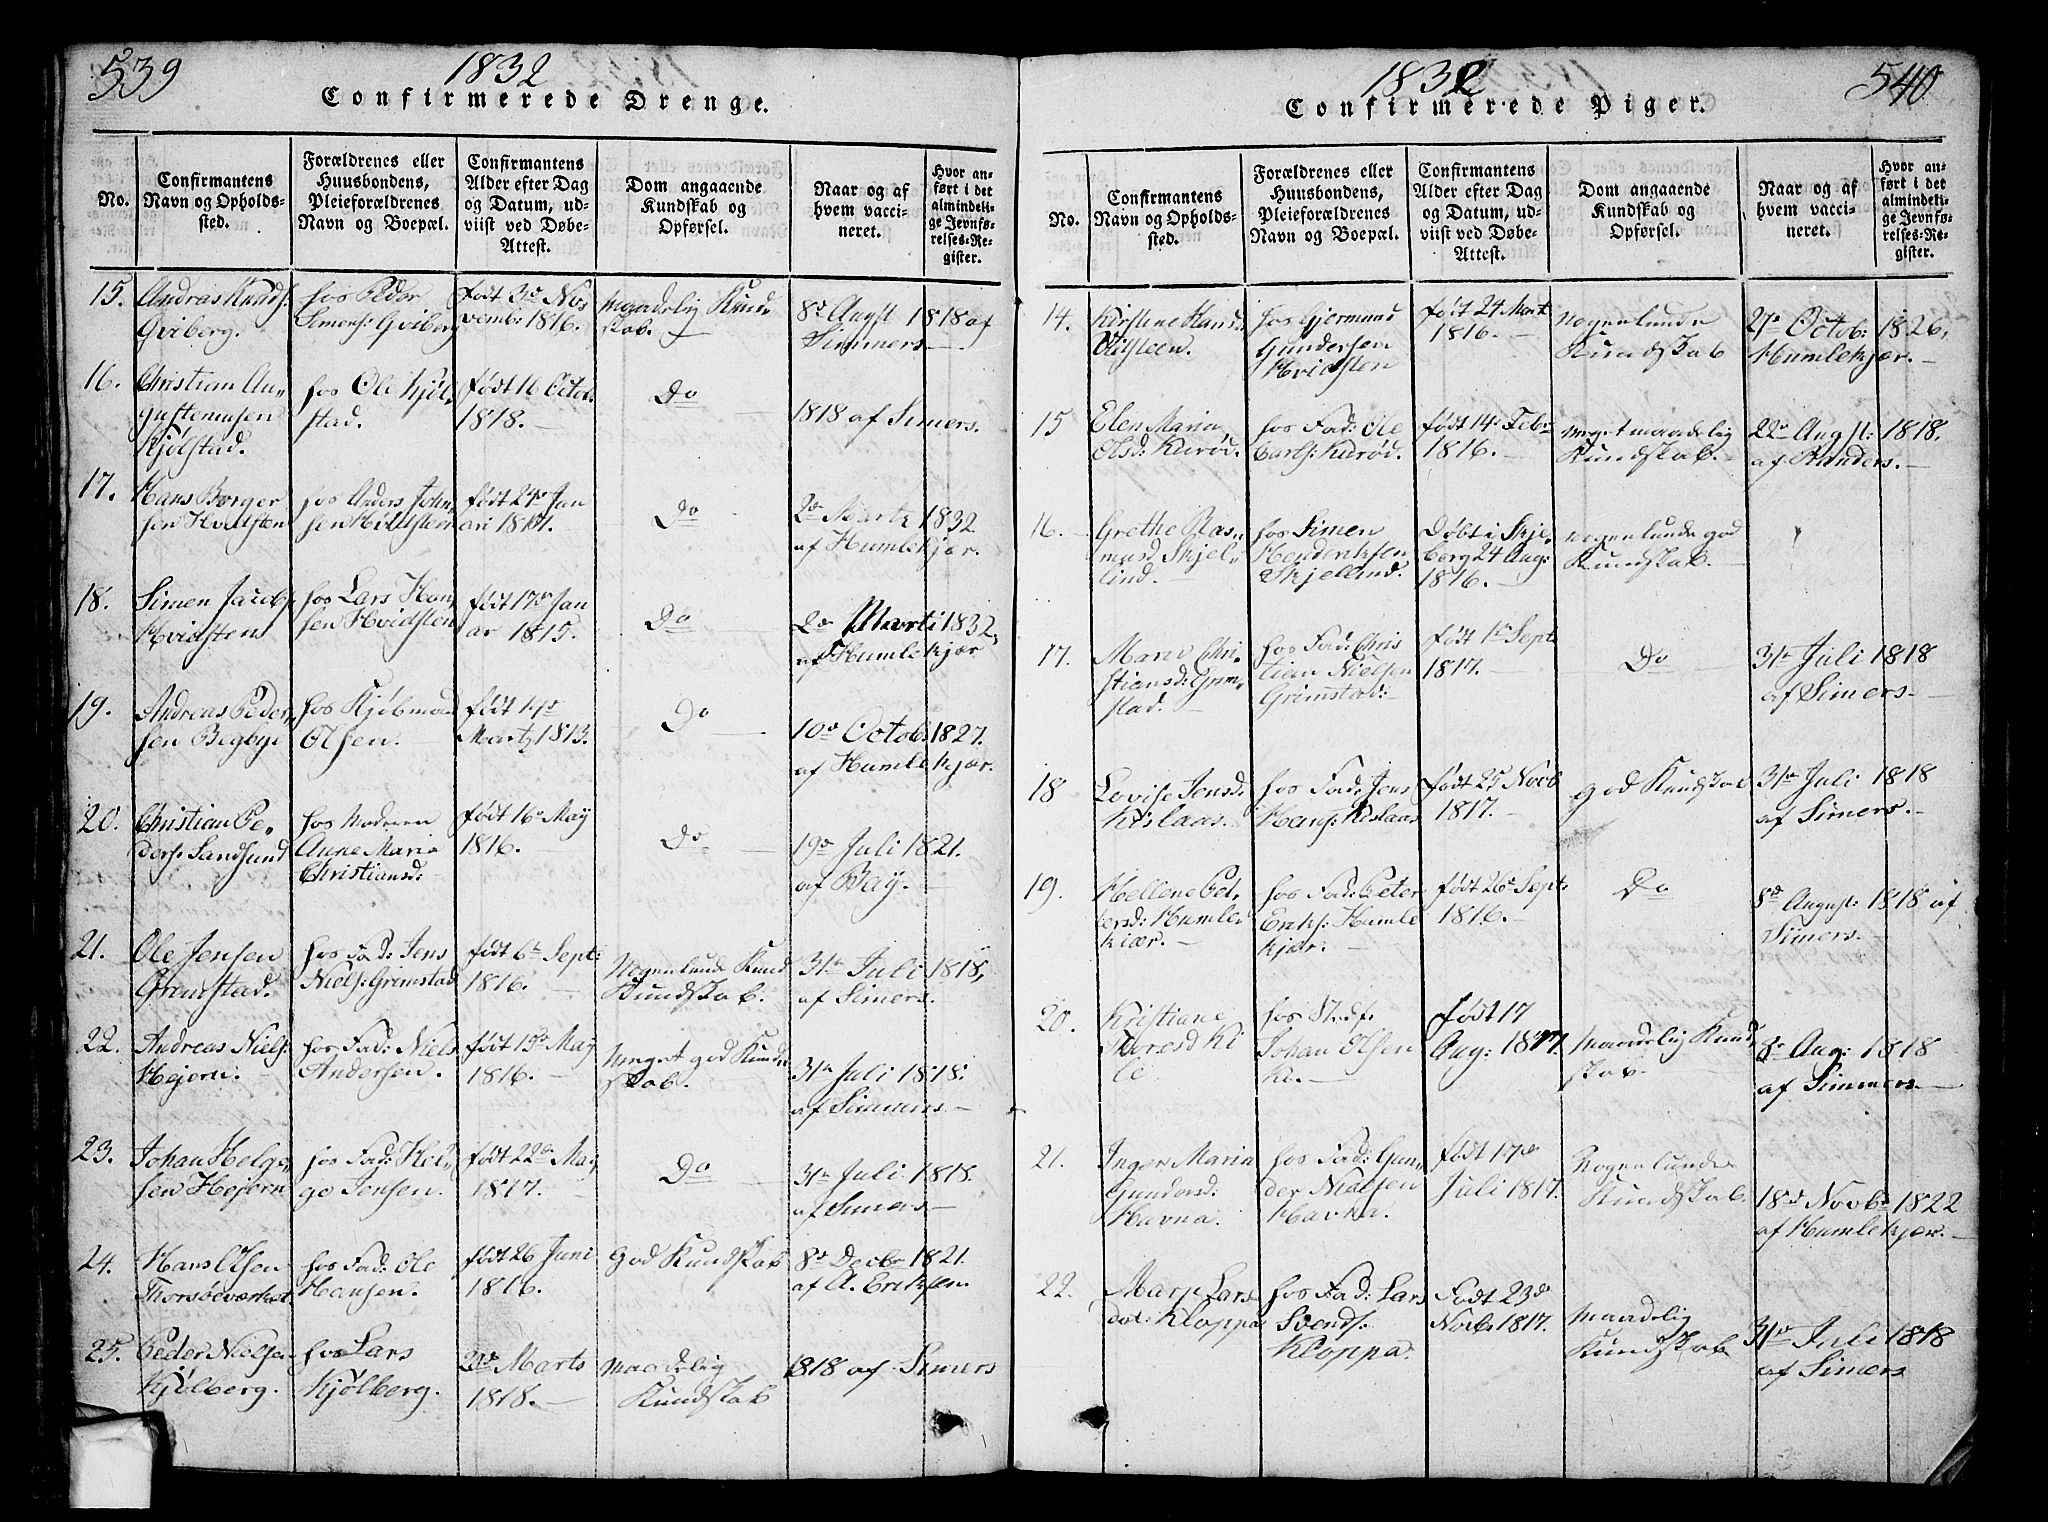 539
1832
Confirmerede Drenge.
No.
Confirmantens
Navn og Opholds-
sted.
Forældrenes eller
Huusbondens,
Pleieforældrenes
Navn og Boepæl.
Confirmantens
Alder efter Dag
og Datum, ud-
viist ved Døbe-
Attest.
Dom angaaende
Kundskab og
Opførsel.
Naar og af
hvem vacci-
neret.
Hvor an-
ført i det
almindeli-
ge Jevnfø-
relses-Re-
gister.
15.
Andreas Knuds:
Gviberg.
hos Peder
Simens: Gviberg
født 3die Nov
vemb: 1816.
maadelig Kund
skab.
8de Augst 1818 af
Simmers.
16.
Christian Au-
gustenusen
Kjølstad.
hos Ole Kjøl-
stad.
født 16 Octob.
1818.
Do
1818 af Simers.
17.
Hans Borger
sen Hvidsten
hos Anders John-
sen Hvidsten
født 24de Jan
ari
Do
2den Martz 1832
af Humlekjær.
18.
Simen Jacobs
Hvidsten
hos Lars Han-
sen Hvidsten
født 17de Jan
ar 1815.
Do
2den Marti 1832,
af Humlekjær
19.
Andreas Peder-
sen Begbye
hos Kjøbmand
Olsen.
født
Martz 1813.
Do
10de Octob 1827.
af Humlekjær.
20.
Christian Pe-
ders: Sandsund
hos Moderen
Anne Maria
Christiansd:
født 16de May
1816.
Do
19de Juli 1821.
af Bay.
21.
Ole Jensen
Grimstad.
hos Fad: Jens
Niels: Grimstad
født 6te Sept:
1816.
Nogenlunde Kund
Kundskab.
31te Juli 1818,
af Simers.
22.
Andreas Niels:
Hejern.
hos Fad: Niels
Andersen.
født 19de May
1816.
Meget god Kund-
skab.
31te Juli 1818.
af Simmers.
23.
Johan Helge-
sen Hejern
hos Fad: Hel-
ge Jensen.
født 22de May
1817.
Do
31te Juli 1818.
af Simers.
24.
Hans Olsen
Thorsøeværket.
hos Fad: Ole
Hansen.
født 26 Juni
1816.
God Kundskab
8de Decbr 1821.
af A. Eriksen.
25.
Peder Nielsen
Kjølberg.
hos Lars
Kjølberg.
Marts
1818.
Maadelig
Kundskab
1818 af Simers
1832
540
Confirmerede Piger.
No.
Confirmantens
Navn og Opholds-
sted.
Forældrenes eller
Huusbondens,
Pleieforældrenes
Navn og Boepæl.
Confirmantens
Alder efter Dag
og Datum, ud-
viist ved Døbe-
Attest.
Dom angaaende
Kundskab og
Opførsel.
Naar og af
hvem vacci-
neret.
Hvor an-
ført i det
almindeli-
ge Jevnfø-
relses-Re-
gister.
14.
Kirstene Hans
hos Gjermund
Gundersen
Hvidsten
født 24 Mart
1816.
Nogenlunde
Kundskab
27de Octob: 1826,
Humlekjær.
15
Elen Maria
Olsd: Kurød.
hos Fad: Ole
Carls: Kurød.
født 14: Febr
1816.
Meget maadelig
Kundskab.
22de Augst: 1818,
af Randers.
16.
Grethe Ras-
musd Skjel-
lind.
hos Simen
Henderiksen
Skjellind.
Døbt i Skje-
berg 24 Aug:
1816.
nogenlunde god
Kundskab.
17.
Maren Chri-
stiansd: Grim-
stad.
hos Fad: Chris
tian Nielsen
Grimstad:
født 1de Sept
1817.
Do
31te Juli 1818
af Simers
18
Lovise Jensd:
Kislaas.
hos Fad: Jens
Hans: Kislaas
født 25 Novb
1817.
God Kundskab
31te Juli 1818
af Simers.
19.
Hellene Pet-
tersd: Humle-
kiær.
hos Fad: Peter
Eriks: Humle
kjær.
født 26de Sept:
1816.
Do
8de August: 1818 af
Simers.
20.
Kristiane
Thoresd Ki
le
hos Stedf.
Johan Olsen
Ki.
født 17
Aug: 1817.
Maadelig Kund
skab.
8de Aug: 1818
af Simmers.
21.
Inger Maria
Gundersd:
Havna.
hos Fad: Gun-
der Nielsen
Havna.
født 17de
Juli 1817.
Nogenlunde
Kundskab.
18de Novbr 1822
af Humlekjær.
22.
Marje Lars
dat: Kloppa
hos Fad: Lars
Svends:
Kloppa.
Født 23de
Novb 1817.
Maadelig
Kundskab
31te Juli 1818
af Simers